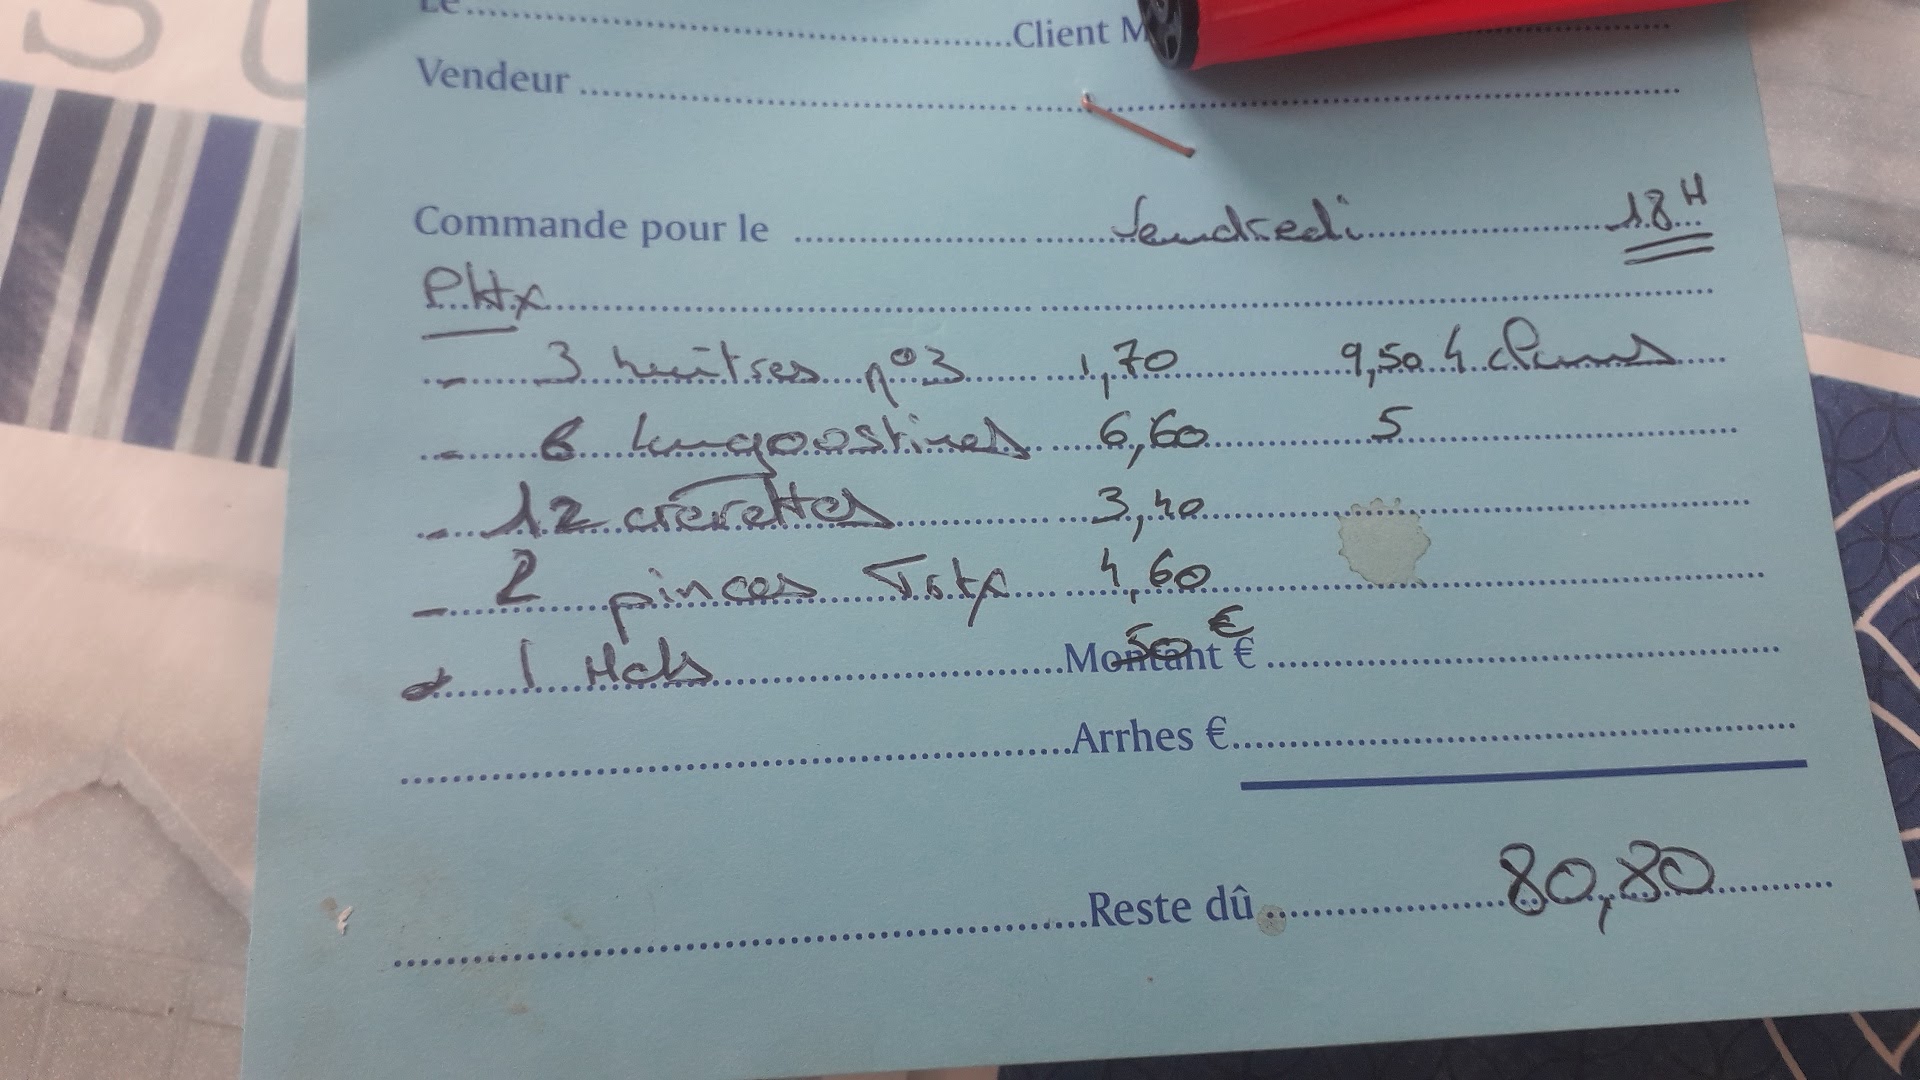 Le
Client M
Vendeur
Commande pour le Vendredi 18H
- 3 huîtres n°3 1,70 9,50 4 Clams
- 6 langoostines 6,60 5
- 12 crevettes 3,40
- 2 pinces Totx 4,60
1 50 €
Montant €
Arrhes €
Reste dû 80,80